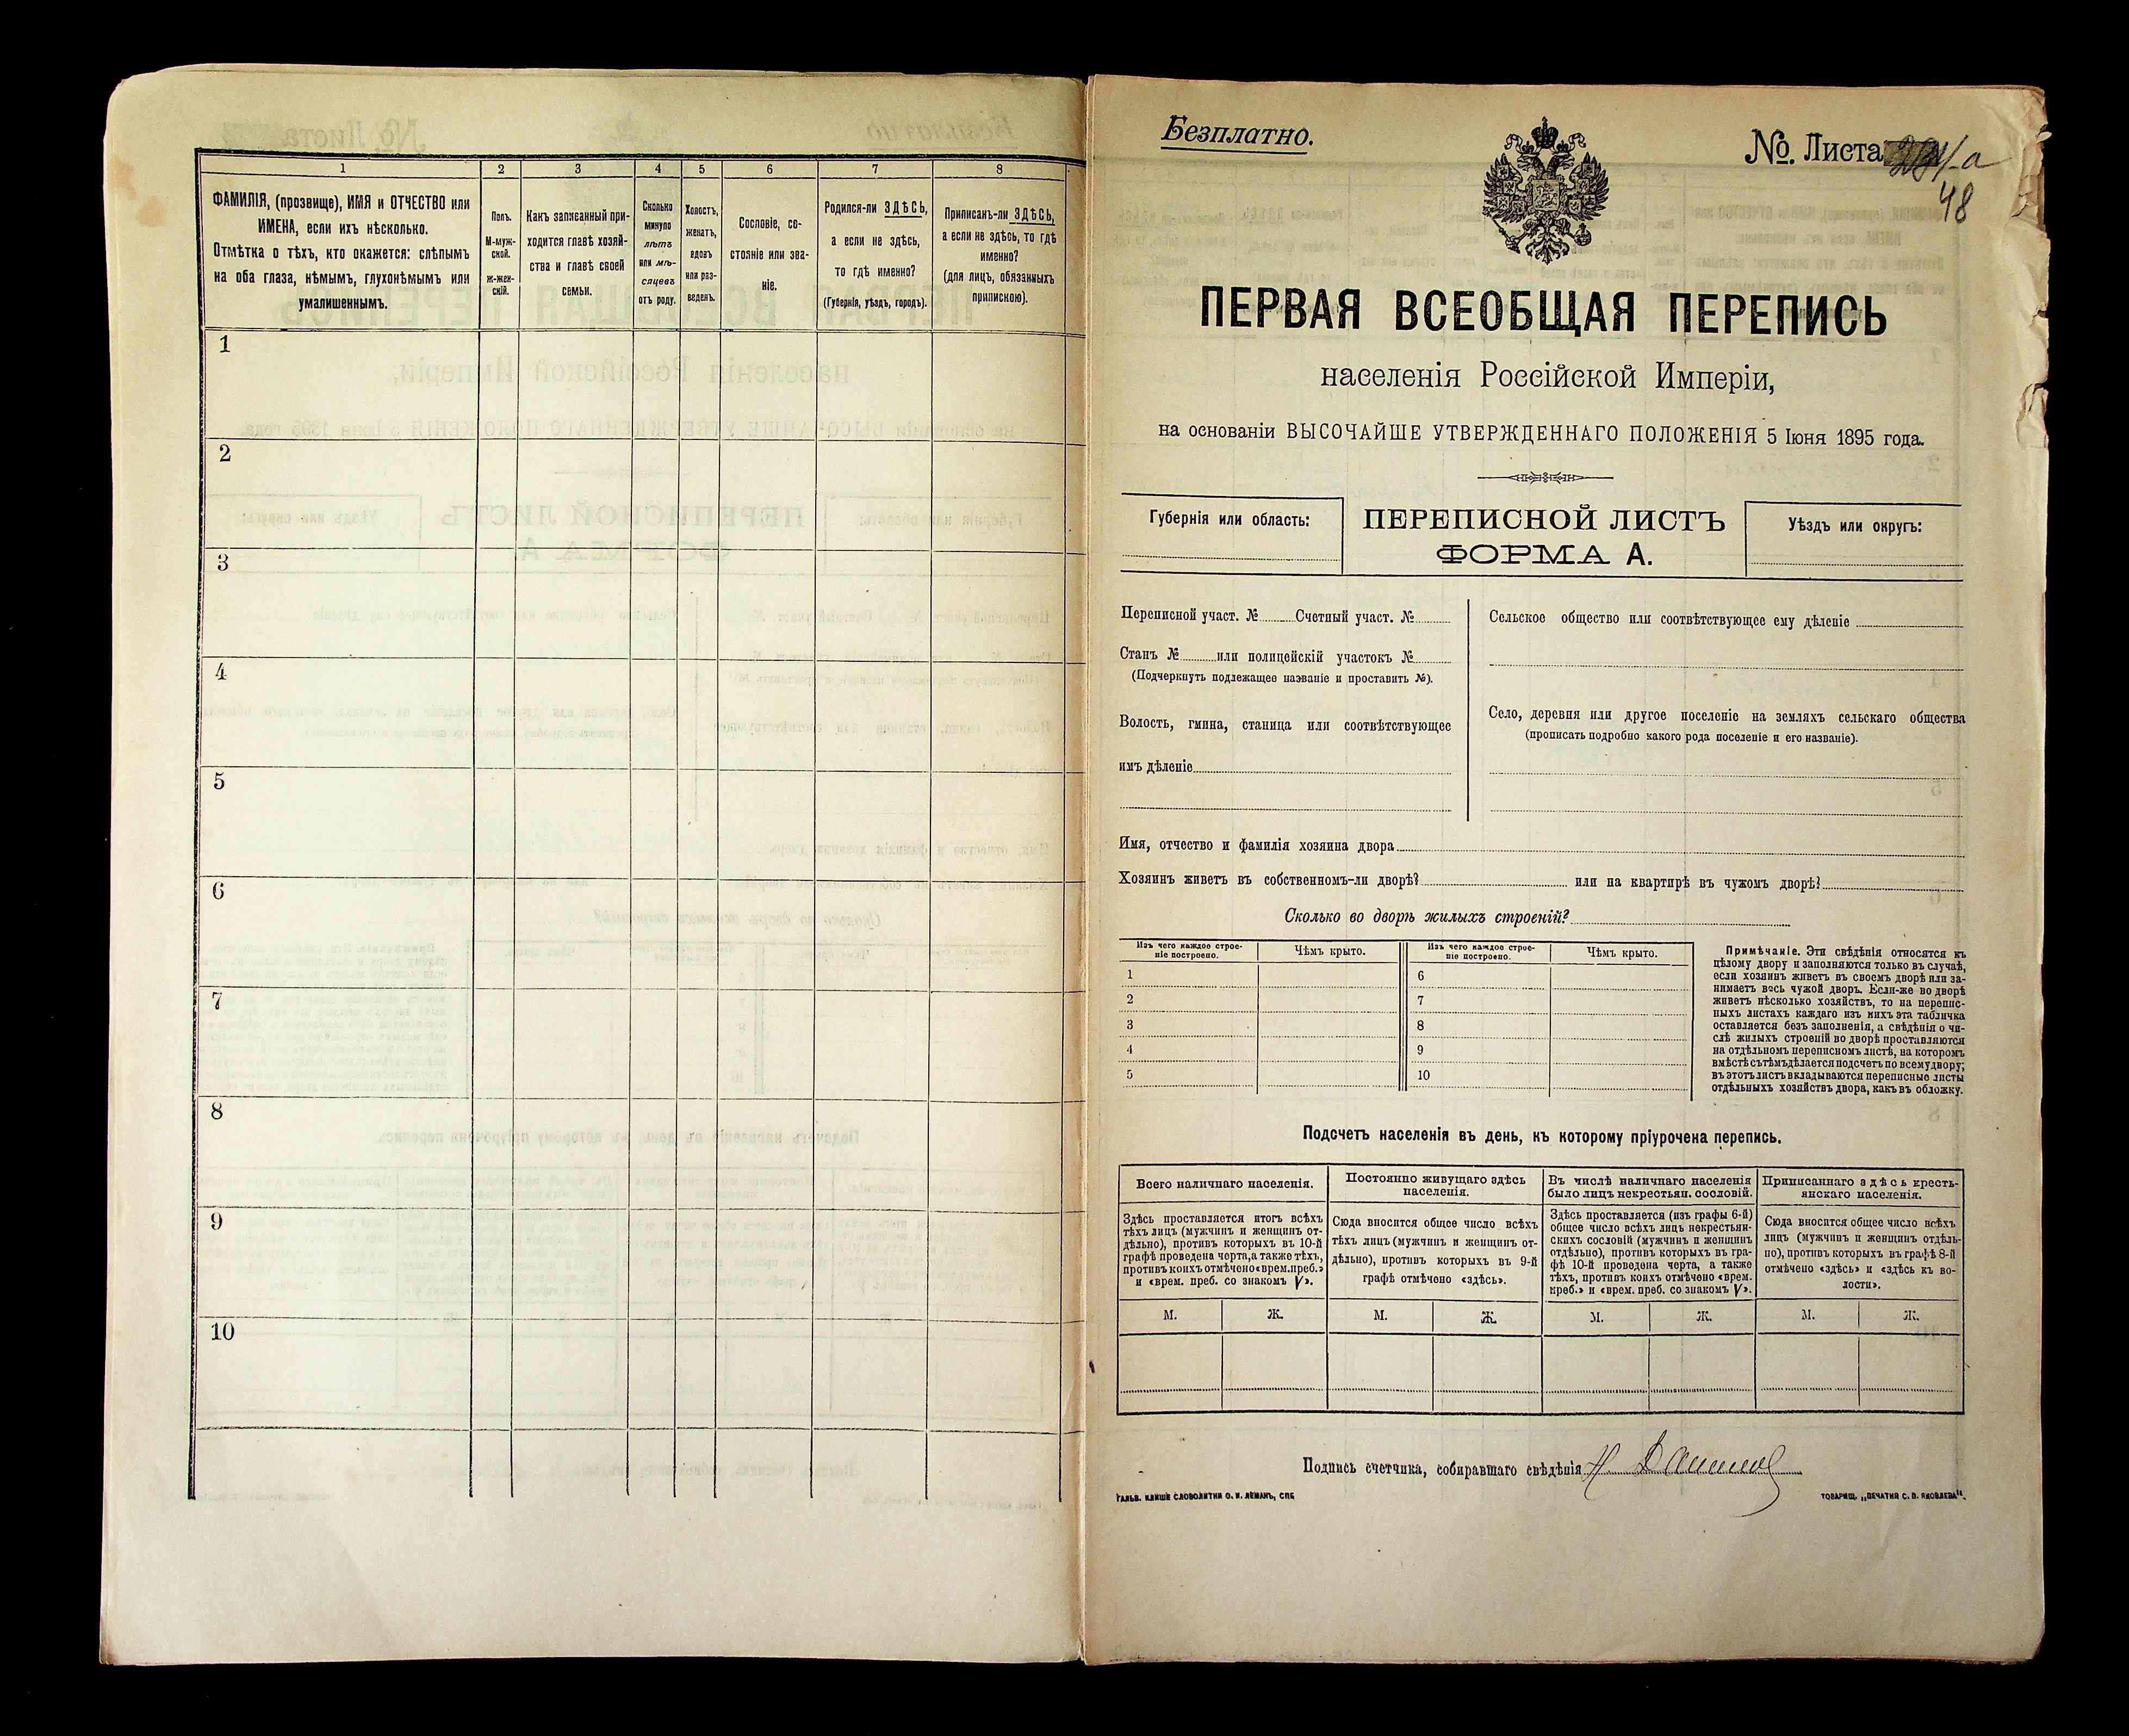 1
2
3
4
5
6
7
8
ФАМИЛІЯ, (прозвище), ИМЯ и ОТЧЕСТВО или
ИМЕНА, если ихъ нѣсколько.
Отмѣтка о тѣхъ, кто окажется: слѣпымъ
на оба глаза, нѣмымъ, глухонѣмымъ или
умалишеннымъ.
Полъ.
М-муж-
ской.
Ж-жен-
скій.
Какъ записанный при-
ходится главѣ хозяй-
ства и главѣ своей
семьи.
Сколько
минуло
лѣтъ
или мѣ-
сяцевъ
отъ роду.
Холостъ,
женатъ,
вдовъ
или раз-
веденъ.
Сословіе, со-
стояніе или зва-
ніе.
Родился-ли ЗДѢСЬ,
а если не здѣсь,
то гдѣ именно?
(Губернія, уѣздъ, городъ).
Приписанъ-ли ЗДѢСЬ,
а если не здѣсь, то гдѣ
именно?
(для лицъ, обязанныхъ
припискою).
1
2
3
4
5
6
7
8
9
10
Безплатно.
№. Листа
48
ПЕРВАЯ ВСЕОБЩАЯ ПЕРЕПИСЬ
населенія Россійской Имперіи,
на основаніи ВЫСОЧАЙШЕ УТВЕРЖДЕННАГО ПОЛОЖЕНІЯ 5 Іюня 1895 года.
Губернія или область:
ПЕРЕПИСНОЙ ЛИСТЪ
ФОРМА А.
Уѣздъ или округъ:
Переписной участ. № Счетный участ. №
Станъ № или полицейскій участокъ №
(Подчеркнуть подлежащее названіе и проставить №).
Волость, гмина, станица или соотвѣтствующее
имъ дѣленіе
Сельское общество или соотвѣтствующее ему дѣленіе
Село, деревня или другое поселеніе на земляхъ сельскаго общества
(прописать подробно какого рода поселеніе и его названіе).
Имя, отчество и фамилія хозяина двора
Хозяинъ живетъ въ собственномъ-ли дворѣ? или на квартирѣ въ чужомъ дворѣ?
Сколько во дворѣ жилыхъ строеній?
Изъ чего каждое строе-
ніе построено.
Чѣмъ крыто.
Изъ чего каждое строе-
ніе построено.
Чѣмъ крыто.
1
2
3
4
5
6
7
8
9
10
Примѣчаніе. Эти свѣдѣнія относятся къ
цѣлому двору и заполняются только въ случаѣ,
если хозяинъ живетъ въ своемъ дворѣ или за-
нимаетъ весь чужой дворъ. Если-же во дворѣ
живетъ нѣсколько хозяйствъ, то на перепис-
ныхъ листахъ каждаго изъ нихъ эта табличка
оставляется безъ заполненія, а свѣдѣнія о чи-
слѣ жилыхъ строеній во дворѣ проставляются
на отдѣльномъ переписномъ листѣ, на которомъ
вмѣстѣ съ тѣмъ дѣлается подсчетъ по всему двору;
въ этотъ листъ вкладываются переписные листы
отдѣльныхъ хозяйствъ двора, какъ въ обложку.
Подсчетъ населенія въ день, къ которому пріурочена перепись.
Всего наличнаго населенія.
Здѣсь проставляется итогъ всѣхъ
тѣхъ лицъ (мужчинъ и женщинъ от-
дѣльно), противъ которыхъ въ 10-й
графѣ проведена черта, а также тѣхъ,
противъ коихъ отмѣчено «врем. преб.»
и «врем. преб. со знакомъ V».
Постоянно живущаго здѣсь
населенія.
Сюда вносится общее число всѣхъ
тѣхъ лицъ (мужчинъ и женщинъ от-
дѣльно), противъ которыхъ въ 9-й
графѣ отмѣчено «здѣсь».
Въ числѣ наличнаго населенія
было лицъ некрестьян. сословій.
Здѣсь проставляется (изъ графы 6-й)
общее число всѣхъ лицъ некрестьян-
скихъ сословій (мужчинъ и женщинъ
отдѣльно), противъ которыхъ въ гра-
фѣ 10-й проведена черта, а также
тѣхъ, противъ коихъ отмѣчено «врем.
преб.» и «врем. преб. со знакомъ V».
Приписаннаго здѣсь кресть-
янскаго населенія.
Сюда вносится общее число всѣхъ
лицъ (мужчинъ и женщинъ отдѣль-
но), противъ которыхъ въ графѣ 8-й
отмѣчено «здѣсь» и «здѣсь къ во-
лости».
М. Ж. М. Ж. М. Ж. М. Ж.
Подпись счетчика, собиравшаго свѣдѣнія
ГАЛЬВ. КЛИШЕ СЛОВОЛИТНИ О. И. ЛЕМАНЪ, СПБ
ТОВАРИЩ. „ПЕЧАТНЯ С. П. ЯКОВЛЕВА“.